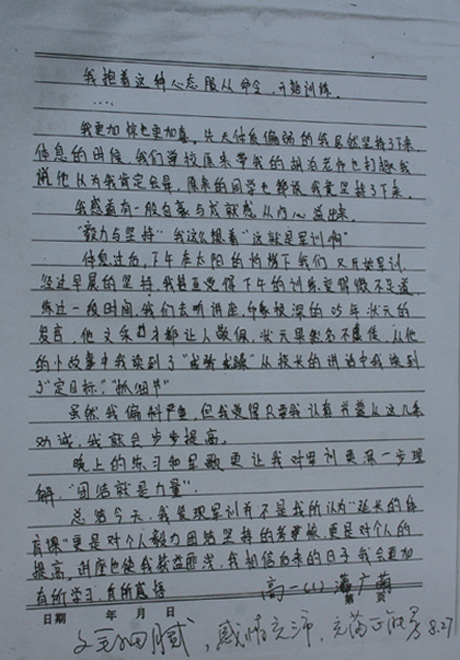 我抱着这种心态服从命令，开始训练。
....
我更加惊也更加喜。先天体质偏弱的我居然坚持了下来。
休息的时候，我们学校原来带我的胡老师也打趣我
说他认为我肯定会晕，原来的同学也都说我竟坚持了下来。
我感道有一股自豪与成就感从内心溢出来。
"毅力与坚持"我这么想着"这就是军训啊"
休息过后，下午在太阳的灼烤下我们又开始军训，
经过早晨的坚持，我甚至觉得下午的训练变得微不足道
练过一段时间，我们去听讲座，印象极深的05年状元的
发言，他文采才都让人敬佩，状元果然名不虚传，从他
的小故事中我读到了"戒骄戒躁"从校长的讲话中我读到
了"定目标""抓细节"
虽然我偏科严重，但我觉得只要我认真并遵从这几条
劝诫，我就会步步提高。
晚上的练习和星歌更让我对军训更深一步理
解："团结就是力量"．
总结今天，我发现军训并不是我所认为"延长的体
育课"更是对个人毅力团结坚持的考验，更是对个人的
提高。讲座也使我获益匪浅，我相信后来的日子我会更加
有所学习，有所感悟
高一（1） 广
日期 年 月 日 第 页
文笔细腻，感情充沛，充满正能量 8.27